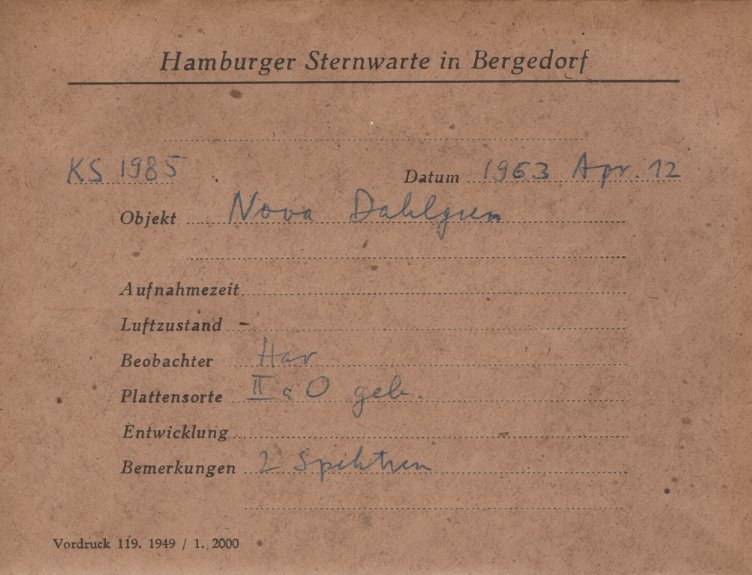 Hamburger Sternwarte in Bergedorf
KS 1985 Datum 1963 Apr. 12
Objekt Nova Dahlgren
Aufnahmezeit
Luftzustand
Beobachter Har
Plattensorte II a O geb.
Entwicklung
Bemerkungen 2 Spektren
Vordruck 119. 1949 / 1. 2000